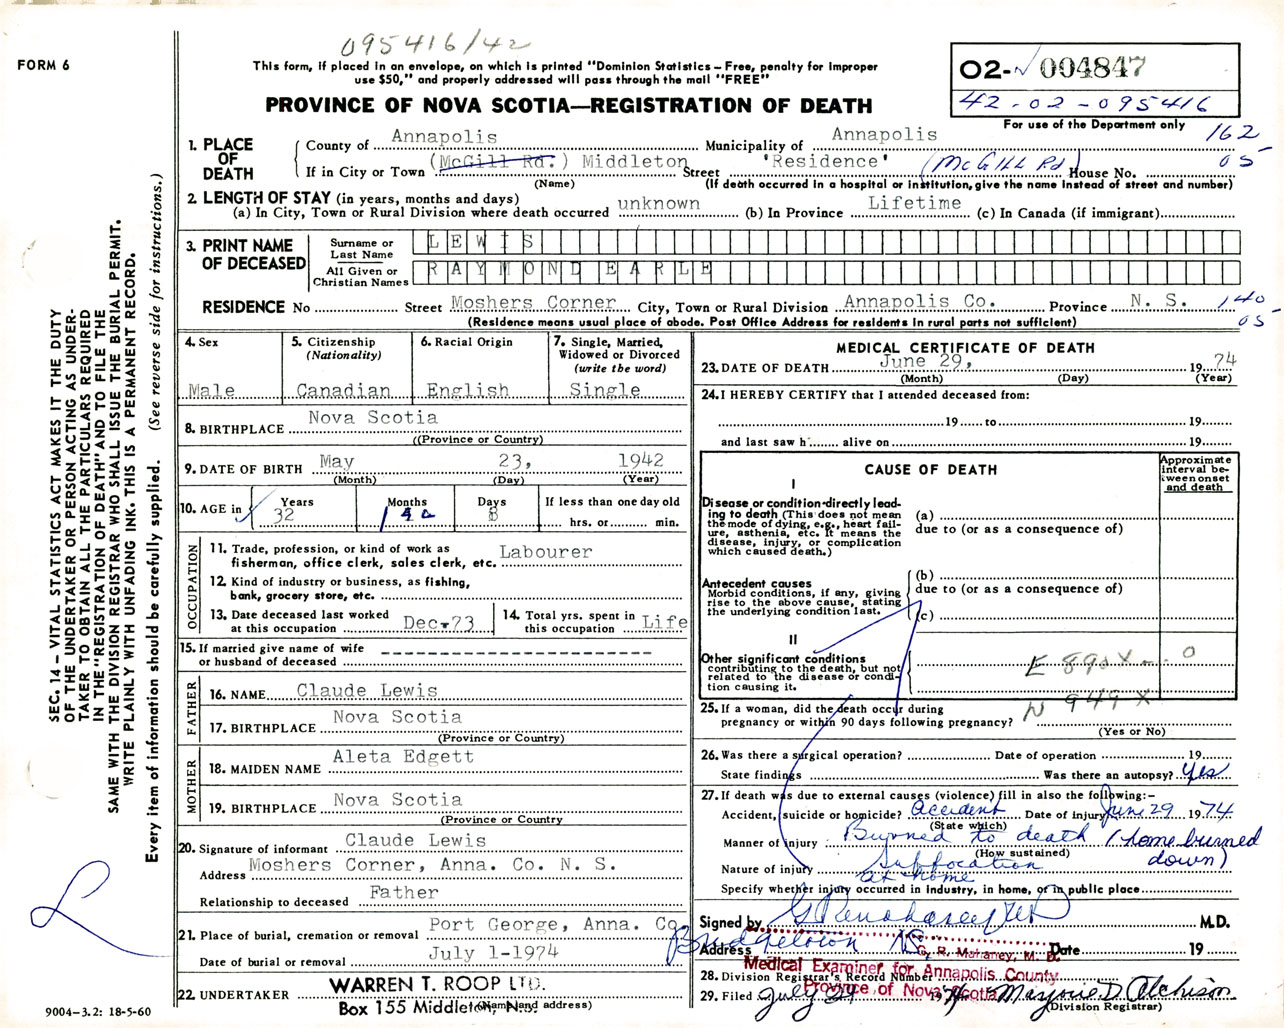 095416/42
FORM 6
This form, if placed in an envelope, on which is printed "Dominion Statistics – Free, penalty for improper
use $50," and properly addressed will pass through the mail "FREE"
02- 004847
42-02-095416
For use of the Department only
PROVINCE OF NOVA SCOTIA—REGISTRATION OF DEATH
162
05
1. PLACE OF DEATH
County of Annapolis Municipality of Annapolis
If in City or Town (McGill Rd.) Middleton Street 'Residence' (McGill Rd) House No.
(Name) (If death occurred in a hospital or institution, give the name instead of street and number)
2. LENGTH OF STAY (in years, months and days)
(a) In City, Town or Rural Division where death occurred unknown (b) In Province Lifetime (c) In Canada (if immigrant)
3. PRINT NAME OF DECEASED
Surname or Last Name LEWIS
All Given or Christian Names RAYMOND EARLE
RESIDENCE No Street Moshers Corner City, Town or Rural Division Annapolis Co. Province N. S. 140
05
(Residence means usual place of abode. Post Office Address for residents in rural parts not sufficient)
4. Sex
Male
5. Citizenship
(Nationality)
Canadian
6. Racial Origin
English
7. Single, Married,
Widowed or Divorced
(write the word)
Single
8. BIRTHPLACE Nova Scotia
((Province or Country)
9. DATE OF BIRTH May 23, 1942
(Month) (Day) (Year)
10. AGE in Years Months Days If less than one day old
32 1 hrs. or min.
OCCUPATION
11. Trade, profession, or kind of work as
fisherman, office clerk, sales clerk, etc. Labourer
12. Kind of industry or business, as fishing,
bank, grocery store, etc.
13. Date deceased last worked
at this occupation Dec-73
14. Total yrs. spent in
this occupation Life
15. If married give name of wife
or husband of deceased
FATHER
16. NAME Claude Lewis
17. BIRTHPLACE Nova Scotia
(Province or Country)
MOTHER
18. MAIDEN NAME Aleta Edgett
19. BIRTHPLACE Nova Scotia
(Province or Country
20. Signature of informant Claude Lewis
Address Moshers Corner, Anna. Co. N. S.
Relationship to deceased Father
21. Place of burial, cremation or removal Port George, Anna. Co.
Date of burial or removal July 1-1974
22. UNDERTAKER WARREN T. ROOP LTD.
Box 155 Middleton, N.S.
(Name and address)
MEDICAL CERTIFICATE OF DEATH
23. DATE OF DEATH June 29, 1974
(Month) (Day) (Year)
24. I HEREBY CERTIFY that I attended deceased from:
19 to 19
and last saw h alive on 19
CAUSE OF DEATH
Approximate
interval be-
tween onset
and death
I
Disease or condition directly lead-
ing to death (This does not mean
the mode of dying, e.g., heart fail-
ure, asthenia, etc. It means the
disease, injury, or complication
which caused death.)
(a)
due to (or as a consequence of)
Antecedent causes
Morbid conditions, if any, giving
rise to the above cause, stating
the underlying condition last.
(b)
due to (or as a consequence of)
(c)
II
Other significant conditions
contributing to the death, but not
related to the disease or condi-
tion causing it.
E 890X 0
N 949X
25. If a woman, did the death occur during
pregnancy or within 90 days following pregnancy?
(Yes or No)
26. Was there a surgical operation? Date of operation 19
State findings Was there an autopsy? Yes
27. If death was due to external causes (violence) fill in also the following:–
Accident, suicide or homicide? accident Date of injury June 29 1974
(State which)
Manner of injury Burned to death (home burned
(How sustained) down)
Nature of injury Suffocation
at home
Specify whether injury occurred in industry, in home, or in public place
Signed by M.D.
Address Bridgetown NS, Date 19
Medical Examiner for Annapolis County
Province of Nova Scotia
28. Division Registrar's Record Number
29. Filed July 19 Marjorie D.
(Division Registrar)
SEC. 14 – VITAL STATISTICS ACT MAKES IT THE DUTY
OF THE UNDERTAKER OR PERSON ACTING AS UNDER-
TAKER TO OBTAIN ALL THE PARTICULARS REQUIRED
IN THE "REGISTRATION OF DEATH" AND TO FILE THE
SAME WITH THE DIVISION REGISTRAR WHO SHALL ISSUE THE BURIAL PERMIT.
WRITE PLAINLY WITH UNFADING INK. THIS IS A PERMANENT RECORD.
Every item of information should be carefully supplied. (See reverse side for instructions.)
9004-3.2: 18-5-60